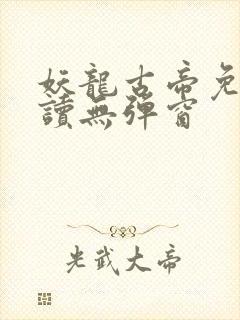 妖龍古帝免
讀無彈窗
光武大帝